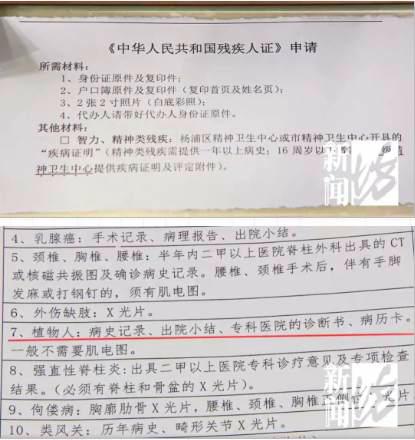 《中华人民共和国残疾人证》申请
所需材料：
1、身份证原件及复印件；
2、户口簿原件及复印件（复印首页及姓名页）；
3、2张2寸照片（白底彩照）；
4、代办人请带好代办人身份证原件。
其他材料：
□ 智力、精神类残疾：杨浦区精神卫生中心或市精神卫生中心开具的
“疾病证明”（精神类残疾需提供一年以上病史；16周岁以
神卫生中心提供疾病证明及评定附件）。
新闻坊
4、乳腺癌：手术记录、病理报告、出院小结。
5、颈椎、胸椎、腰椎：半年内二甲以上医院脊柱外科出具的CT
或核磁共振图及确诊病史记录。腰椎、颈椎手术后，伴有手脚
发麻或打钢钉的，须有肌电图。
6、外伤缺肢：X光片。
7、植物人：病史记录、出院小结、专科医院的诊断书、病历卡。
一般不需要肌电图。
8、强直性脊柱炎：出具二甲以上医院专科诊疗意见及专项检查
结果。（必须有脊柱和骨盆的X光片）。
9、佝偻病：胸廓肋骨X光片，腰椎、颈椎、胸椎
光片。
10、类风关：历年病史、畸形关节X光片。
新闻坊